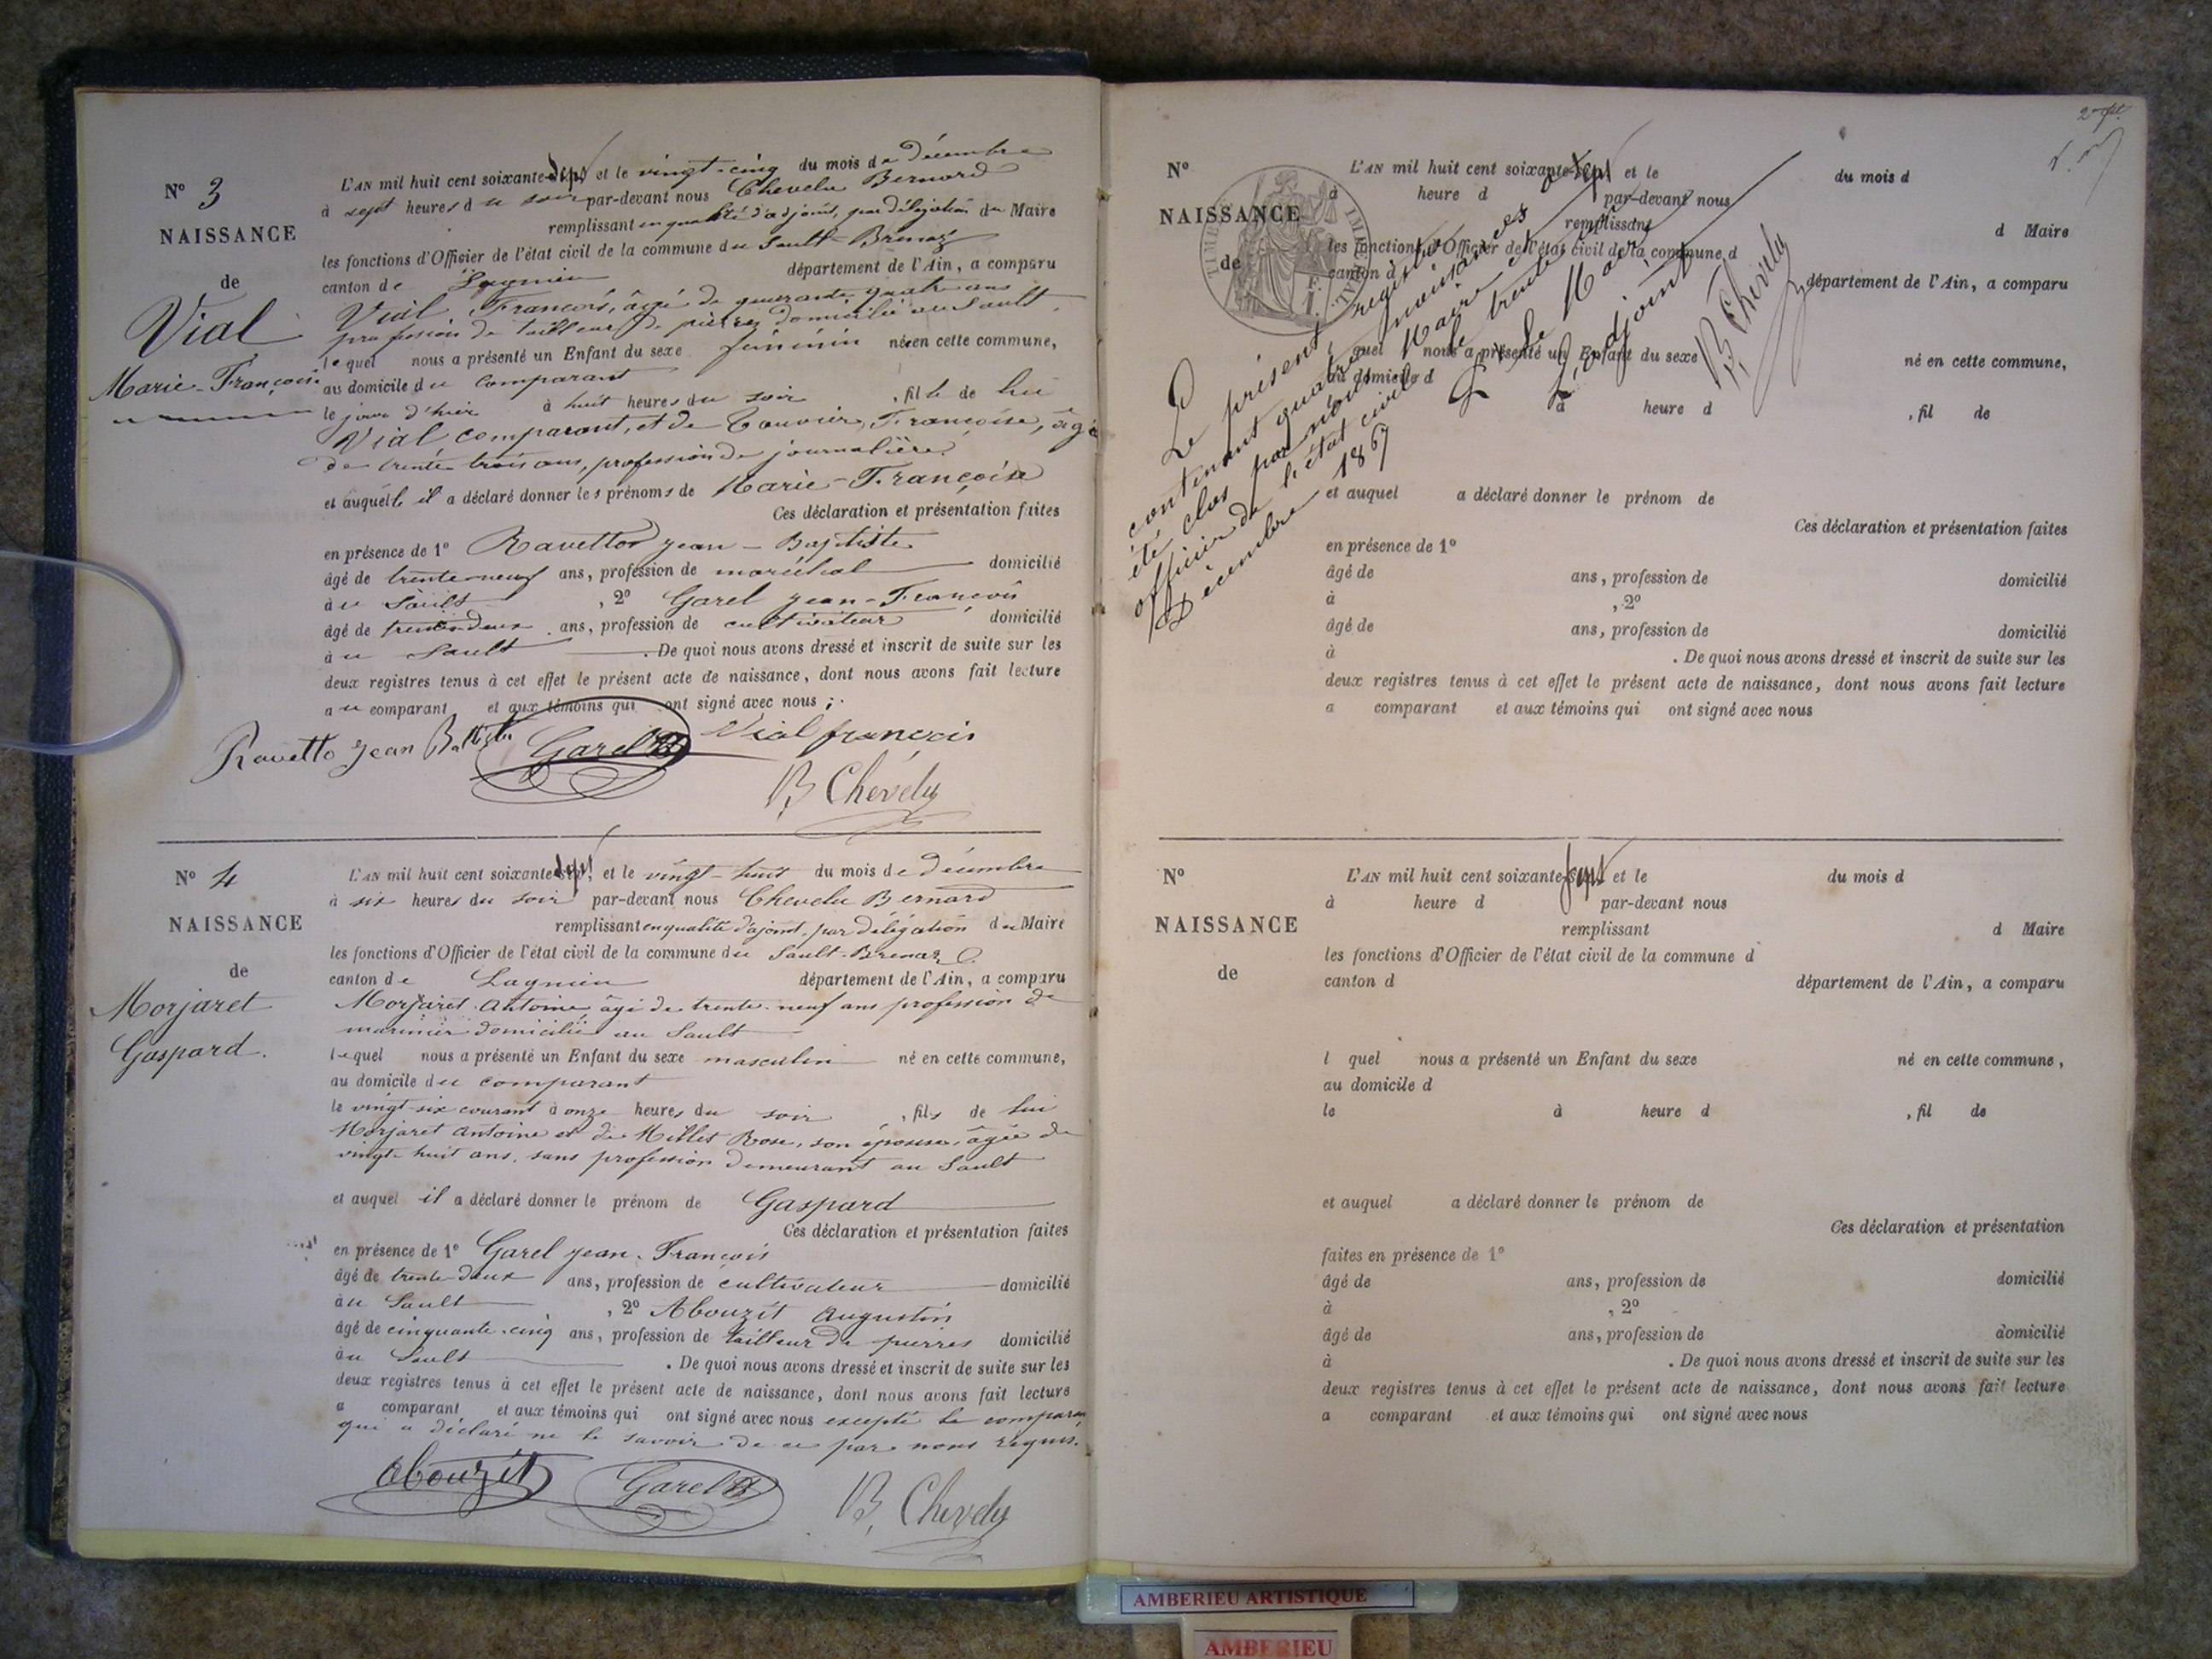 N° 3
NAISSANCE
de
Vial
Marie-Françoise
L'AN mil huit cent soixante-sept et le vingt-cinq du mois de décembre
à sept heures du soir par-devant nous Chevelu Bernard
remplissant en qualité d'adjoint, par délégation du Maire
les fonctions d'Officier de l'état civil de la commune du Sault-Brenaz
canton de Lagnieu département de l'Ain, a comparu
Vial François, âgé de quarante quatre ans
profession de tailleur de pierres domicilié au Sault
lequel nous a présenté un Enfant du sexe féminin née en cette commune,
au domicile du comparant
le jour d'hier à huit heures du soir, fille de lui
Vial comparant, et de Françoise, âgée
de trente trois ans, profession de journalière
et auquelle il a déclaré donner les prénoms de Marie-Françoise
Ces déclaration et présentation faites
en présence de 1° Ravetto Jean-Baptiste
âgé de trente-neuf ans, profession de maréchal domicilié
au Sault, 2° Garel Jean-François
âgé de trente-deux ans, profession de cultivateur domicilié
au Sault . De quoi nous avons dressé et inscrit de suite sur les
deux registres tenus à cet effet le présent acte de naissance, dont nous avons fait lecture
au comparant et aux témoins qui ont signé avec nous ;.
Ravetto Jean Garel Vial françois
B Chévelu
N° 4
NAISSANCE
de
Morjaret
Gaspard.
L'AN mil huit cent soixante-sept, et le vingt-huit du mois de Décembre
à six heures du soir par-devant nous Chevelu Bernard
remplissant en qualité d'ajoint, par Délégation du Maire
les fonctions d'Officier de l'état civil de la commune du Sault-Brenaz
canton de Lagnieu département de l'Ain, a comparu
Morjaret Antoine âgé de trente-neuf ans profession de
marinier domicilié au Sault
lequel nous a présenté un Enfant du sexe masculin né en cette commune,
au domicile du comparant
le vingt-six courant à onze heures du soir, fils de lui
Morjaret Antoine et de Millet Rose, son épouse, âgée de
vingt-huit ans, sans profession Demeurant au Sault
et auquel il a déclaré donner le prénom de Gaspard
Ces déclaration et présentation faites
en présence de 1° Garel Jean-François
âgé de trente-deux ans, profession de cultivateur domicilié
au Sault, 2° Abouzit Augustin
âgé de cinquante-cinq ans, profession de tailleur de pierres domicilié
au Sault . De quoi nous avons dressé et inscrit de suite sur les
deux registres tenus à cet effet le présent acte de naissance, dont nous avons fait lecture
a comparant et aux témoins qui ont signé avec nous excepté le comparant
qui a déclaré ne le savoir de ce par nous requis.
Abouzit Garel B, Chevelu
N°
NAISSANCE
de
L'AN mil huit cent soixante-sept et le du mois d
à heure d par-devant nous
remplissant d Maire
les fonctions d'Officier de l'état civil de la commune d
canton d département de l'Ain, a comparu
quel nous a présenté un Enfant du sexe né en cette commune,
au domicile d
à heure d , fil de
et auquel a déclaré donner le prénom de
Ces déclaration et présentation faites
en présence de 1°
âgé de ans, profession de domicilié
à , 2°
âgé de ans, profession de domicilié
à . De quoi nous avons dressé et inscrit de suite sur les
deux registres tenus à cet effet le présent acte de naissance, dont nous avons fait lecture
a comparant et aux témoins qui ont signé avec nous
Le présent registre
contenant quatre naissances a
été clos par nous Maire et
officier de l'état civil le trente un
Décembre 1867
P. le Maire
L'adjoint
B, Chévelu
N°
NAISSANCE
de
L'AN mil huit cent soixante-sept et le du mois d
à heure d par-devant nous
remplissant d Maire
les fonctions d'Officier de l'état civil de la commune d
canton d département de l'Ain, a comparu
l quel nous a présenté un Enfant du sexe né en cette commune,
au domicile d
le à heure d , fil de
et auquel a déclaré donner le prénom de
Ces déclaration et présentation
faites en présence de 1°
âgé de ans, profession de domicilié
à , 2°
âgé de ans, profession de domicilié
à . De quoi nous avons dressé et inscrit de suite sur les
deux registres tenus à cet effet le présent acte de naissance, dont nous avons fait lecture
a comparant et aux témoins qui ont signé avec nous
AMBERIEU ARTISTIQUE
AMBERIEU